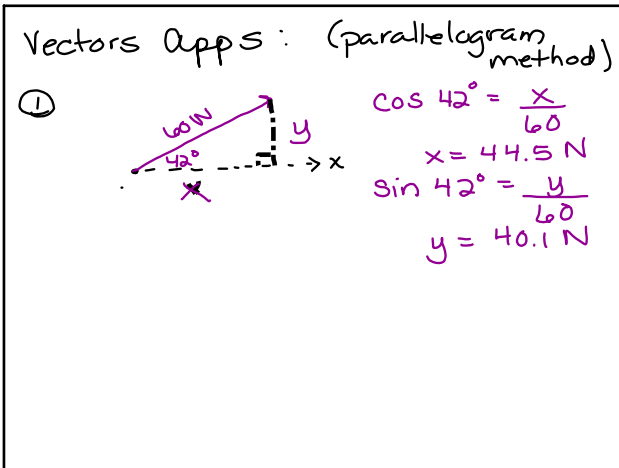 Vectors apps: (parallelogram
method)
①
60N
42°
y
x
x
cos 42° = x/60
x = 44.5 N
sin 42° = y/60
y = 40.1 N